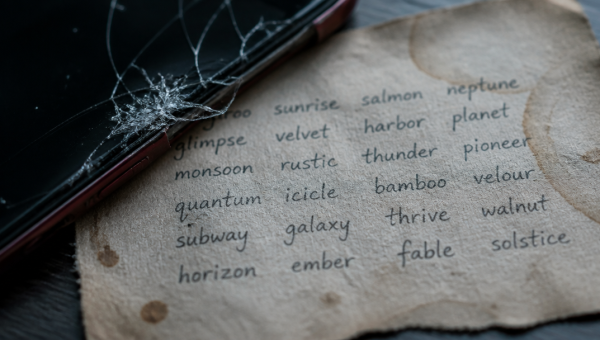 sunrise salmon neptune
glimpse velvet harbor planet
monsoon rustic thunder pioneer
quantum icicle bamboo velour
subway galaxy thrive walnut
horizon ember fable solstice